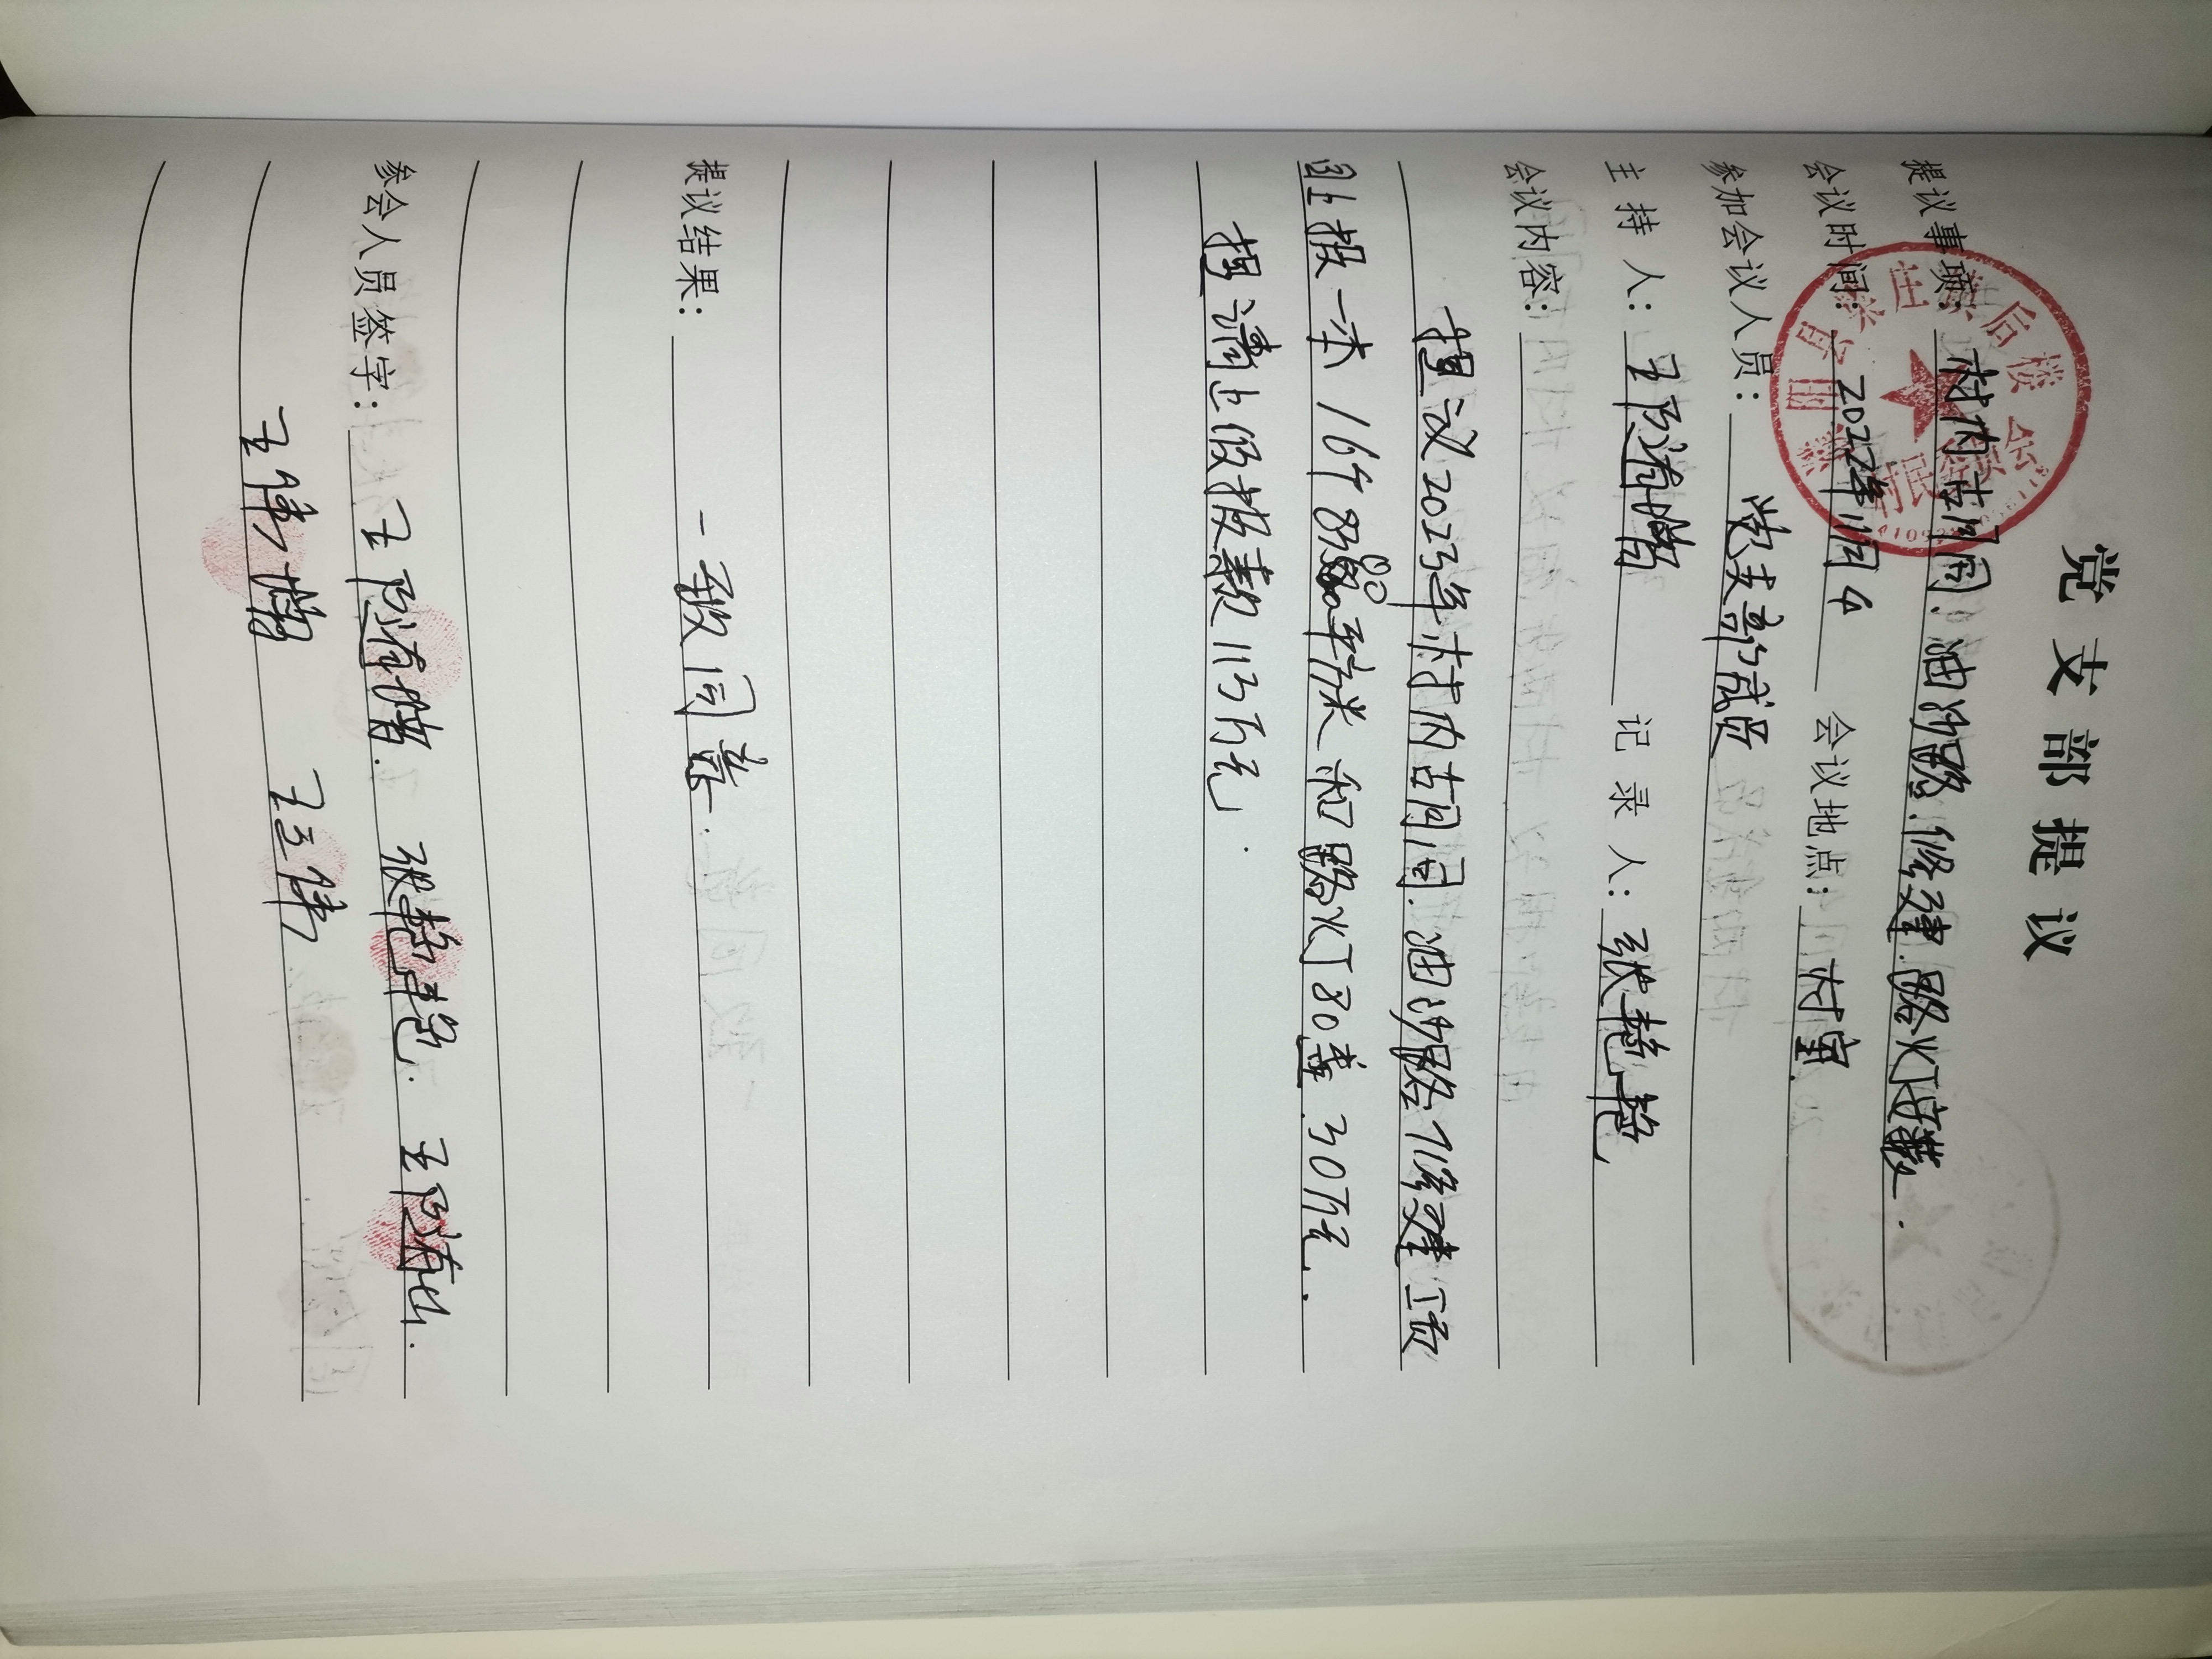 党支部提议
提议事项：村内古月同、油沙路、修建、路灯安装.
会议时间：2022年11月4 会议地点：村室.
参加会议人员：党支部成员
主持人：王随增 记录人：张艳艳
会议内容：
提议2023年村内古月同.油沙路修建工页
目上报一本16个8300平方米和路灯80盏.30万元.
提请上级报款113万元.
提议结果：一致同意.
参会人员签字：王随增.张艳艳.王随山.
王伟增 王三伟
后楼